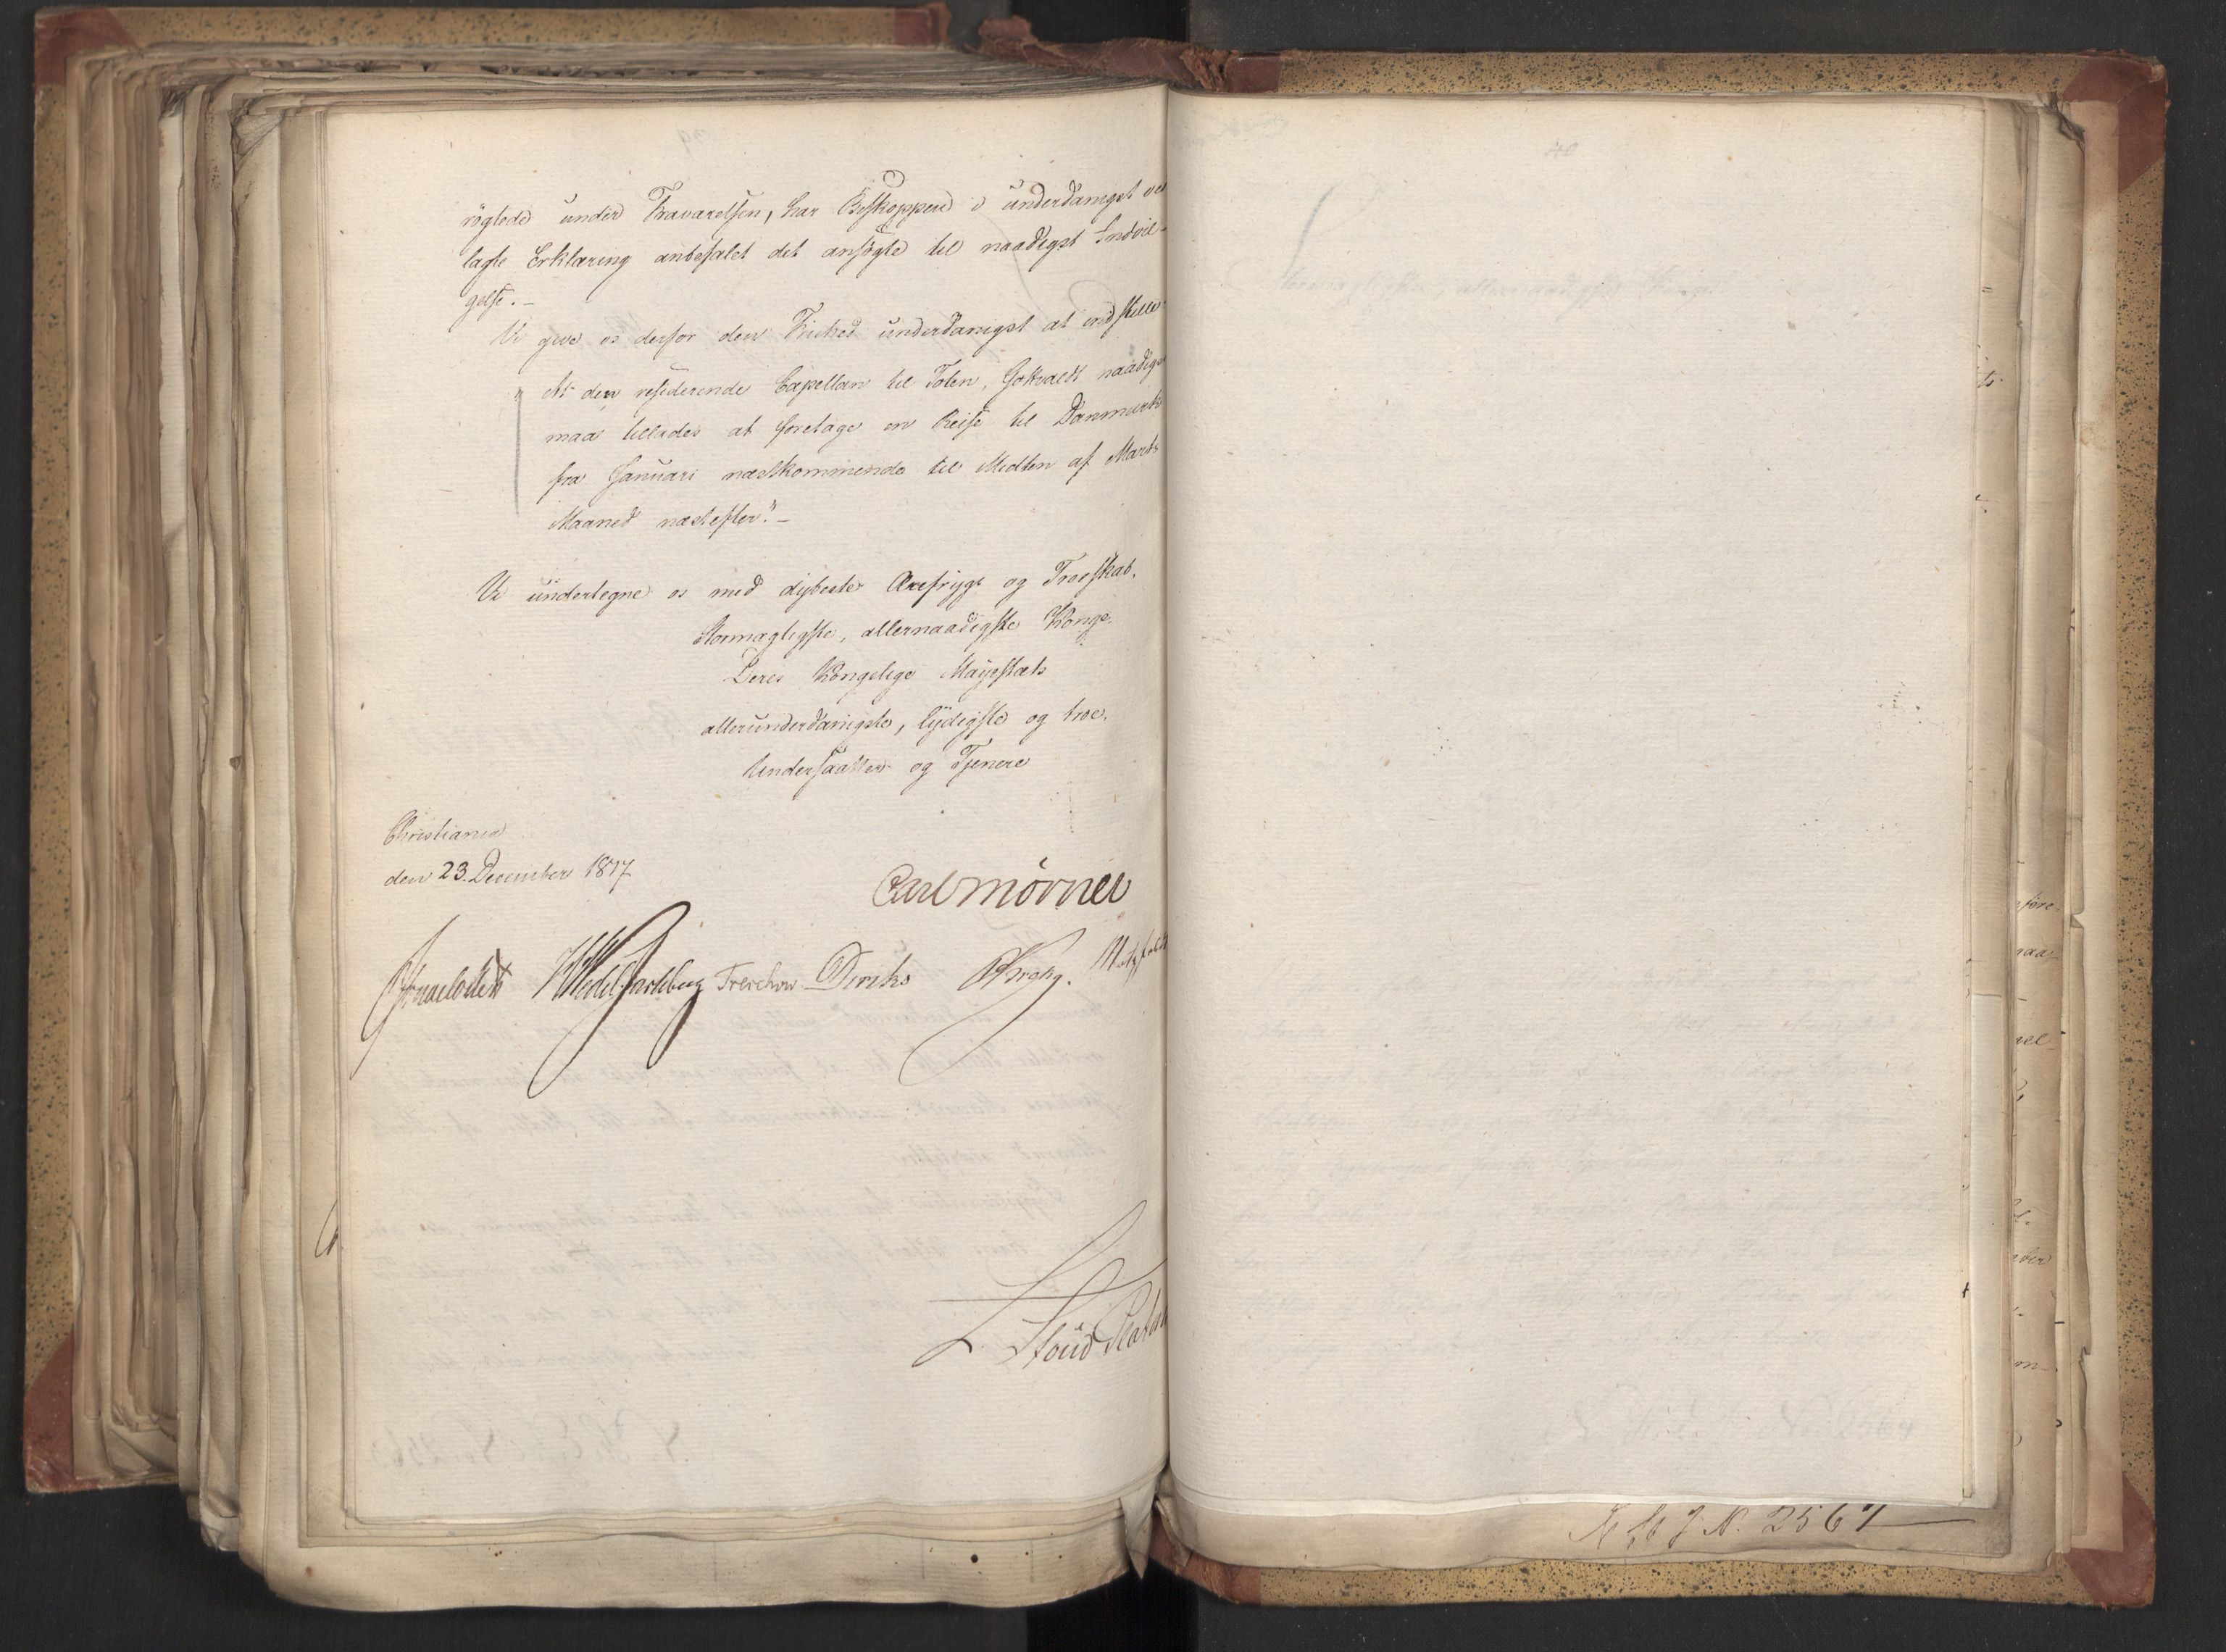 røgtede under Fraværelsen, har Biskoppen i underdanigst ved
lagte Erklæring anbefalet det ansøgte til naadigst Indvil-
gelse. -
Vi give os derfor den Friehed underdanigst at indstille
"At den residerende Capellan til Toten, Gotvaldt naadigst
maa tillades at foretage en Reise til Danmark
fra Januari næstkommende til Medten af Marts
Maaned næstefter." -
Vi undertegne os med dybeste Ærefrygt og Troeskab.
Stormægtigste, allernaadigste Konge.
Deres Kongelige Majestæts
allerunderdanigste, lydigste og troe
Undersaatter og Tjenere
Christiania
den 23. December 1817
Carl Mörner
Wedel Jarlsberg Treschow Diriks Krohg. Motzfeldt
Stoud Platou
N. 2567